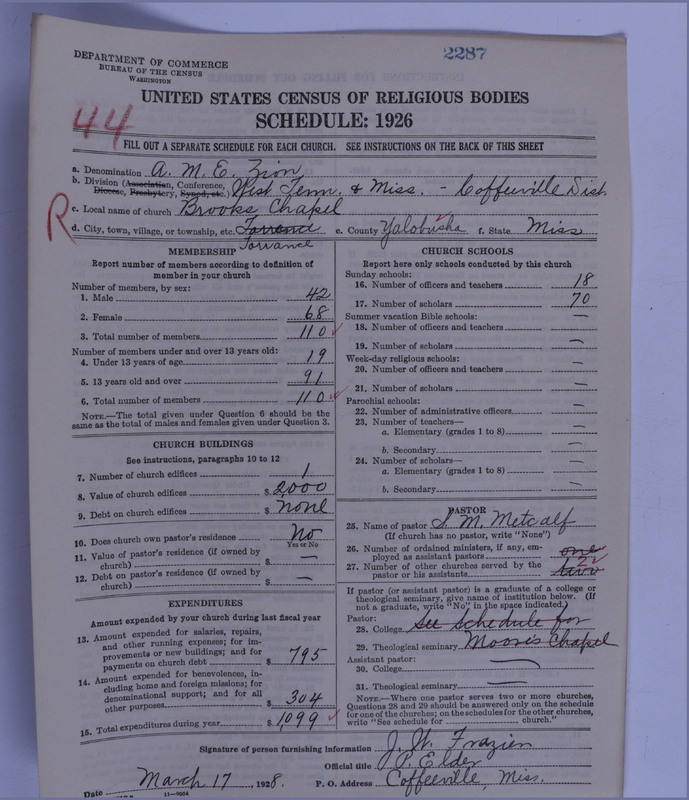 2287
DEPARTMENT OF COMMERCE
BUREAU OF THE CENSUS
WASHINGTON
UNITED STATES CENSUS OF RELIGIOUS BODIES
44
SCHEDULE: 1926
FILL OUT A SEPARATE SCHEDULE FOR EACH CHURCH. SEE INSTRUCTIONS ON THE BACK OF THIS SHEET
a. Denomination A. M. E. Zion
b. Division (Association, Conference, Diocese, Presbytery, Synod, etc.) West Tenn. & Miss. - Coffeeville Dist
c. Local name of church Brooks Chapel
R
d. City, town, village, or township, etc. Torrance e. County Yalobusha f. State Miss
Torrance
MEMBERSHIP
Report number of members according to definition of
member in your church
Number of members, by sex:
1. Male 42
2. Female 68
3. Total number of members 110
Number of members under and over 13 years old:
4. Under 13 years of age 19
5. 13 years old and over 91
6. Total number of members 110
NOTE.—The total given under Question 6 should be
same as the total of males and females given under Question 3.
CHURCH BUILDINGS
See instructions, paragraphs 10 to 12
7. Number of church edifices 1
8. Value of church edifices $2000
9. Debt on church edifices $none
10. Does church own pastor's residence No
Yes or No
11. Value of pastor's residence (if owned by
church) $ —
12. Debt on pastor's residence (if owned by
church) $ —
EXPENDITURES
Amount expended by your church during last fiscal year
13. Amount expended for salaries, repairs,
and other running expenses; for im-
provements or new buildings; and for
payments on church debt $795
14. Amount expended for benevolences, in-
cluding home and foreign missions; for
denominational support; and for all
other purposes $304
15. Total expenditures during year $1,099
CHURCH SCHOOLS
Report here only schools conducted by this church
Sunday schools:
16. Number of officers and teachers 18
17. Number of scholars 70
Summer vacation Bible schools:
18. Number of officers and teachers —
19. Number of scholars —
Week-day religious schools:
20. Number of officers and teachers —
21. Number of scholars —
Parochial schools:
22. Number of administrative officers —
23. Number of teachers—
a. Elementary (grades 1 to 8) —
b. Secondary —
24. Number of scholars—
a. Elementary (grades 1 to 8) —
b. Secondary —
PASTOR
25. Name of pastor S. M. Metcalf
(If church has no pastor, write "None")
26. Number of ordained ministers, if any, em-
ployed as assistant pastors one
27. Number of other churches served by the
pastor or his assistants two 2
If pastor (or assistant pastor) is a graduate of a college or
theological seminary, give name of institution below. (If
not a graduate, write "No" in the space indicated.)
Pastor:
28. College See Schedule for
29. Theological seminary Moore's Chapel
Assistant pastor:
30. College —
31. Theological seminary —
NOTE.—Where one pastor serves two or more churches,
Questions 28 and 29 should be answered only on the schedule
for one of the churches; on the schedules for the other churches,
write "See schedule for church."
Signature of person furnishing information J. W. Frazier
Official title P. Elder
Date March 17, 1928. P. O. Address Coffeeville, Miss.
11—9064